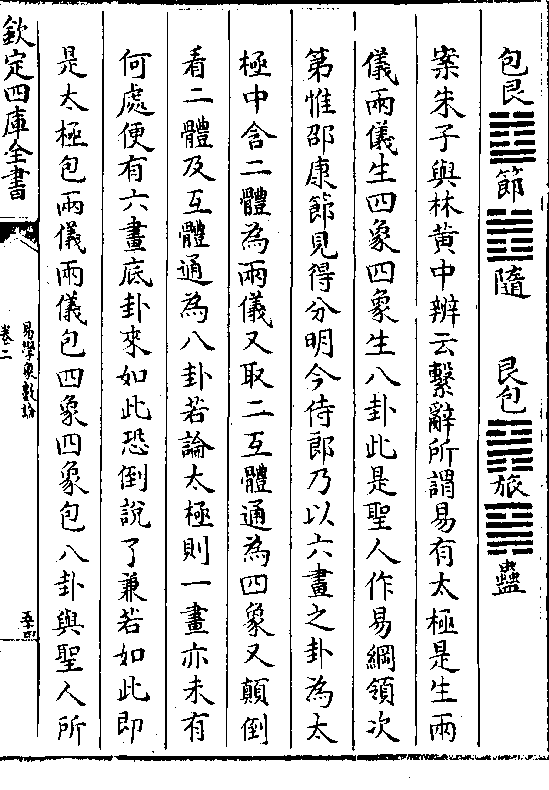 包艮䷻節䷐隨 艮包䷷旅䷑蠱
案朱子與林黄中辨云繫辭所謂易有太極是生兩
儀兩儀生四象四象生八卦此是聖人作易綱領次
第惟邵康節見得分明今侍郎乃以六畫之卦為太
極中含二體為兩儀又取二互體通為四象又顛倒
看二體及互體通為八卦若論太極則一畫亦未有
何處便有六畫底卦來如此恐倒說了兼若如此即
是太極包兩儀兩儀包四象四象包八卦與聖人所
欽定四庫全書
易學象數論
卷二